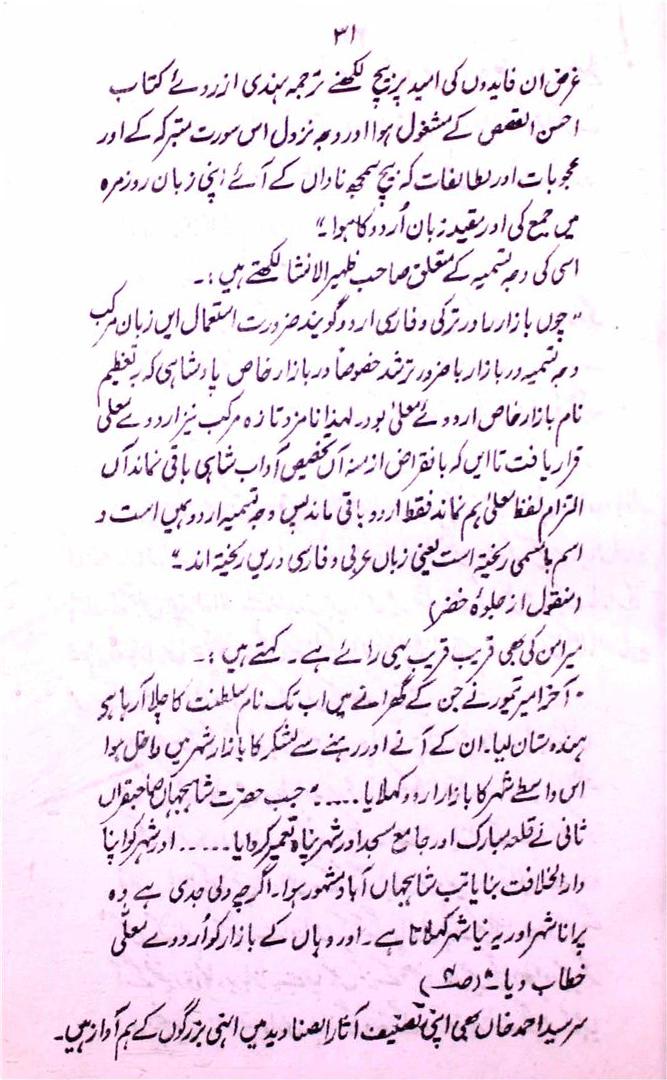 ۳۱
غرض ان فایدوں کی امید پر بیچ لکھنے ترجمہ ہندی از روئے کتاب
احسن القصص کے مشغول ہوا اور وجہ نزول اس سورت متبرکہ کے اور
عجوبات اور لطائفات کہ بیچ سمجھ ناداں کے آئے اپنی زبان روزمرہ
میں جمع کی اور مقید زبان اُردو کا ہوا۔"
اسی کی وجہ تسمیہ کے متعلق صاحب ظہیر الانشا لکھتے ہیں :۔
"چوں بازار را در ترکی و فارسی اردو گویند ضرورت استعمال ایں زبان مرکب
وجہ تسمیہ در بازار با ضرور تر شد خصوصاً در بازار خاص پادشاہی کہ بہ تعظیم
نام بازار خاص اردوئے معلیٰ بود۔ لہذا نامزد تازہ مرکب نیز اردوے معلیٰ
قرار یافت تا ایں کہ بانقراض ازمنہ آں تخصیص آداب شاہی باقی نماند آں
التزام لفظ معلیٰ ہم نماند فقط اردو باقی ماند پس وجہ تسمیہ اردو ہمیں است و
اسم بامسمی ریختہ است یعنی زباں عربی و فارسی دریں ریختہ اند۔"
(منقول از جلوۂ خضر)
میر امن کی بھی قریب قریب یہی رائے ہے۔ کہتے ہیں :۔
"آخر امیر تیمور نے جن کے گھرانے میں اب تک نام سلطنت کا چلا آ رہا ہی
ہندوستان لیا۔ ان کے آنے اور رہنے سے لشکر کا بازار شہر میں داخل ہوا
اس واسطے شہر کا بازار اردو کہلایا ..... " جب حضرت شاہجہاں صاحبقراں
ثانی نے قلعہ مبارک اور جامع مسجد اور شہر پناہ تعمیر کروایا ...... اور شہر کو اپنا
دارالخلافت بنایا تب شاہجہاں آباد مشہور ہوا۔ اگرچہ دلی جدی ہے وہ
پرانا شہر اور یہ نیا شہر کہلاتا ہے۔ اور وہاں کے بازار کو اُردوے معلّی
خطاب دیا۔" (صـ۴)
سر سید احمد خاں بھی اپنی تصنیف آثار الصنادید میں انہی بزرگوں کے ہم آواز ہیں۔